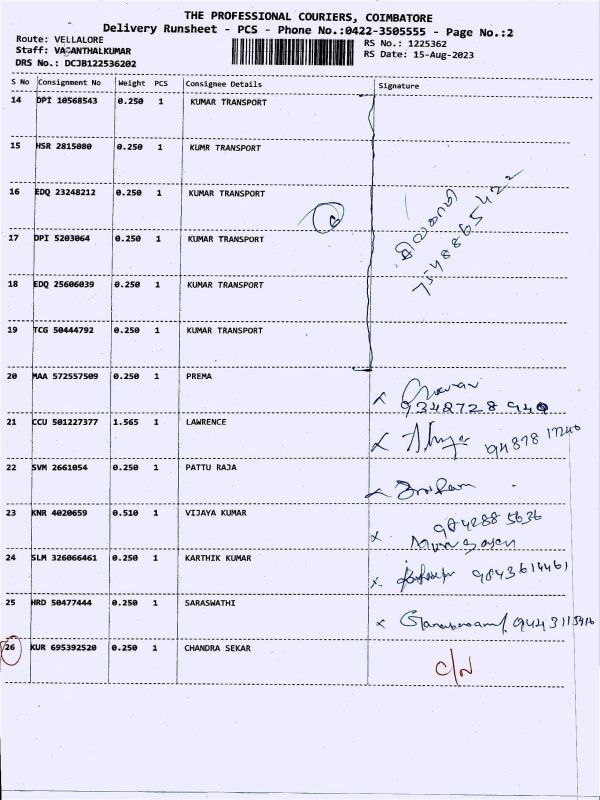 THE PROFESSIONAL COURIERS, COIMBATORE
Delivery Runsheet - PCS - Phone No.:0422-3505555 - Page No.:2
Route: VELLALORE
Staff: VASANTHALKUMAR
DRS No.: DCJB122536202
RS No.: 1225362
RS Date: 15-Aug-2023
S No Consignment No Weight PCS Consignee Details Signature
14 DPI 10568543 0.250 1 KUMAR TRANSPORT
15 HSR 2815080 0.250 1 KUMR TRANSPORT
16 EDQ 23248212 0.250 1 KUMAR TRANSPORT
17 DPI 5203064 0.250 1 KUMAR TRANSPORT
7548865422
18 EDQ 25606039 0.250 1 KUMAR TRANSPORT
19 TCG 50444792 0.250 1 KUMAR TRANSPORT
20 MAA 572557509 0.250 1 PREMA
9342728940
21 CCU 501227377 1.565 1 LAWRENCE
22 SVM 2661054 0.250 1 PATTU RAJA
23 KNR 4020659 0.510 1 VIJAYA KUMAR
984288 5636
Murugasen
24 SLM 326066461 0.250 1 KARTHIK KUMAR
9843614461
25 HRD 50477444 0.250 1 SARASWATHI
26 KUR 695392520 0.250 1 CHANDRA SEKAR
C/N